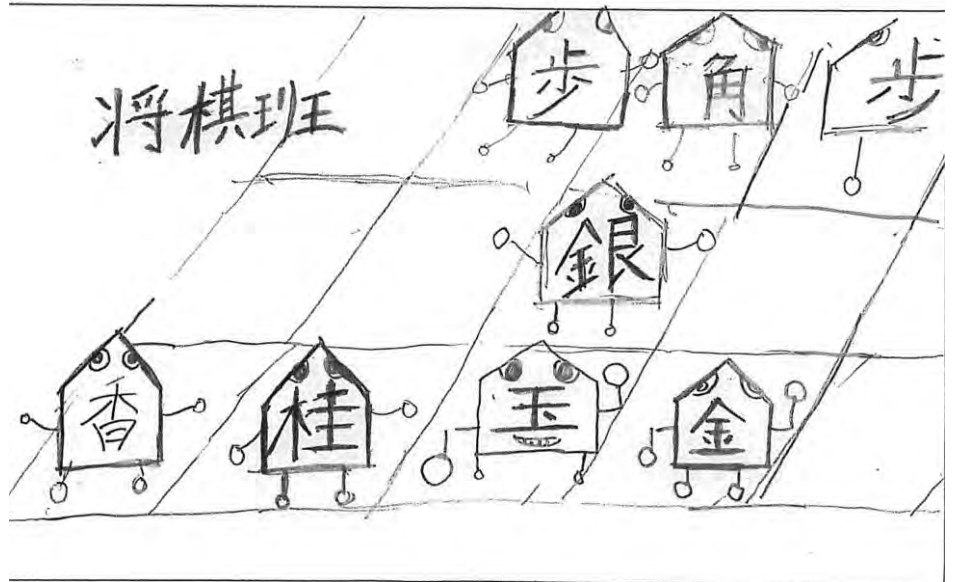 将棋班
歩 角 歩
銀
香 桂 玉 金